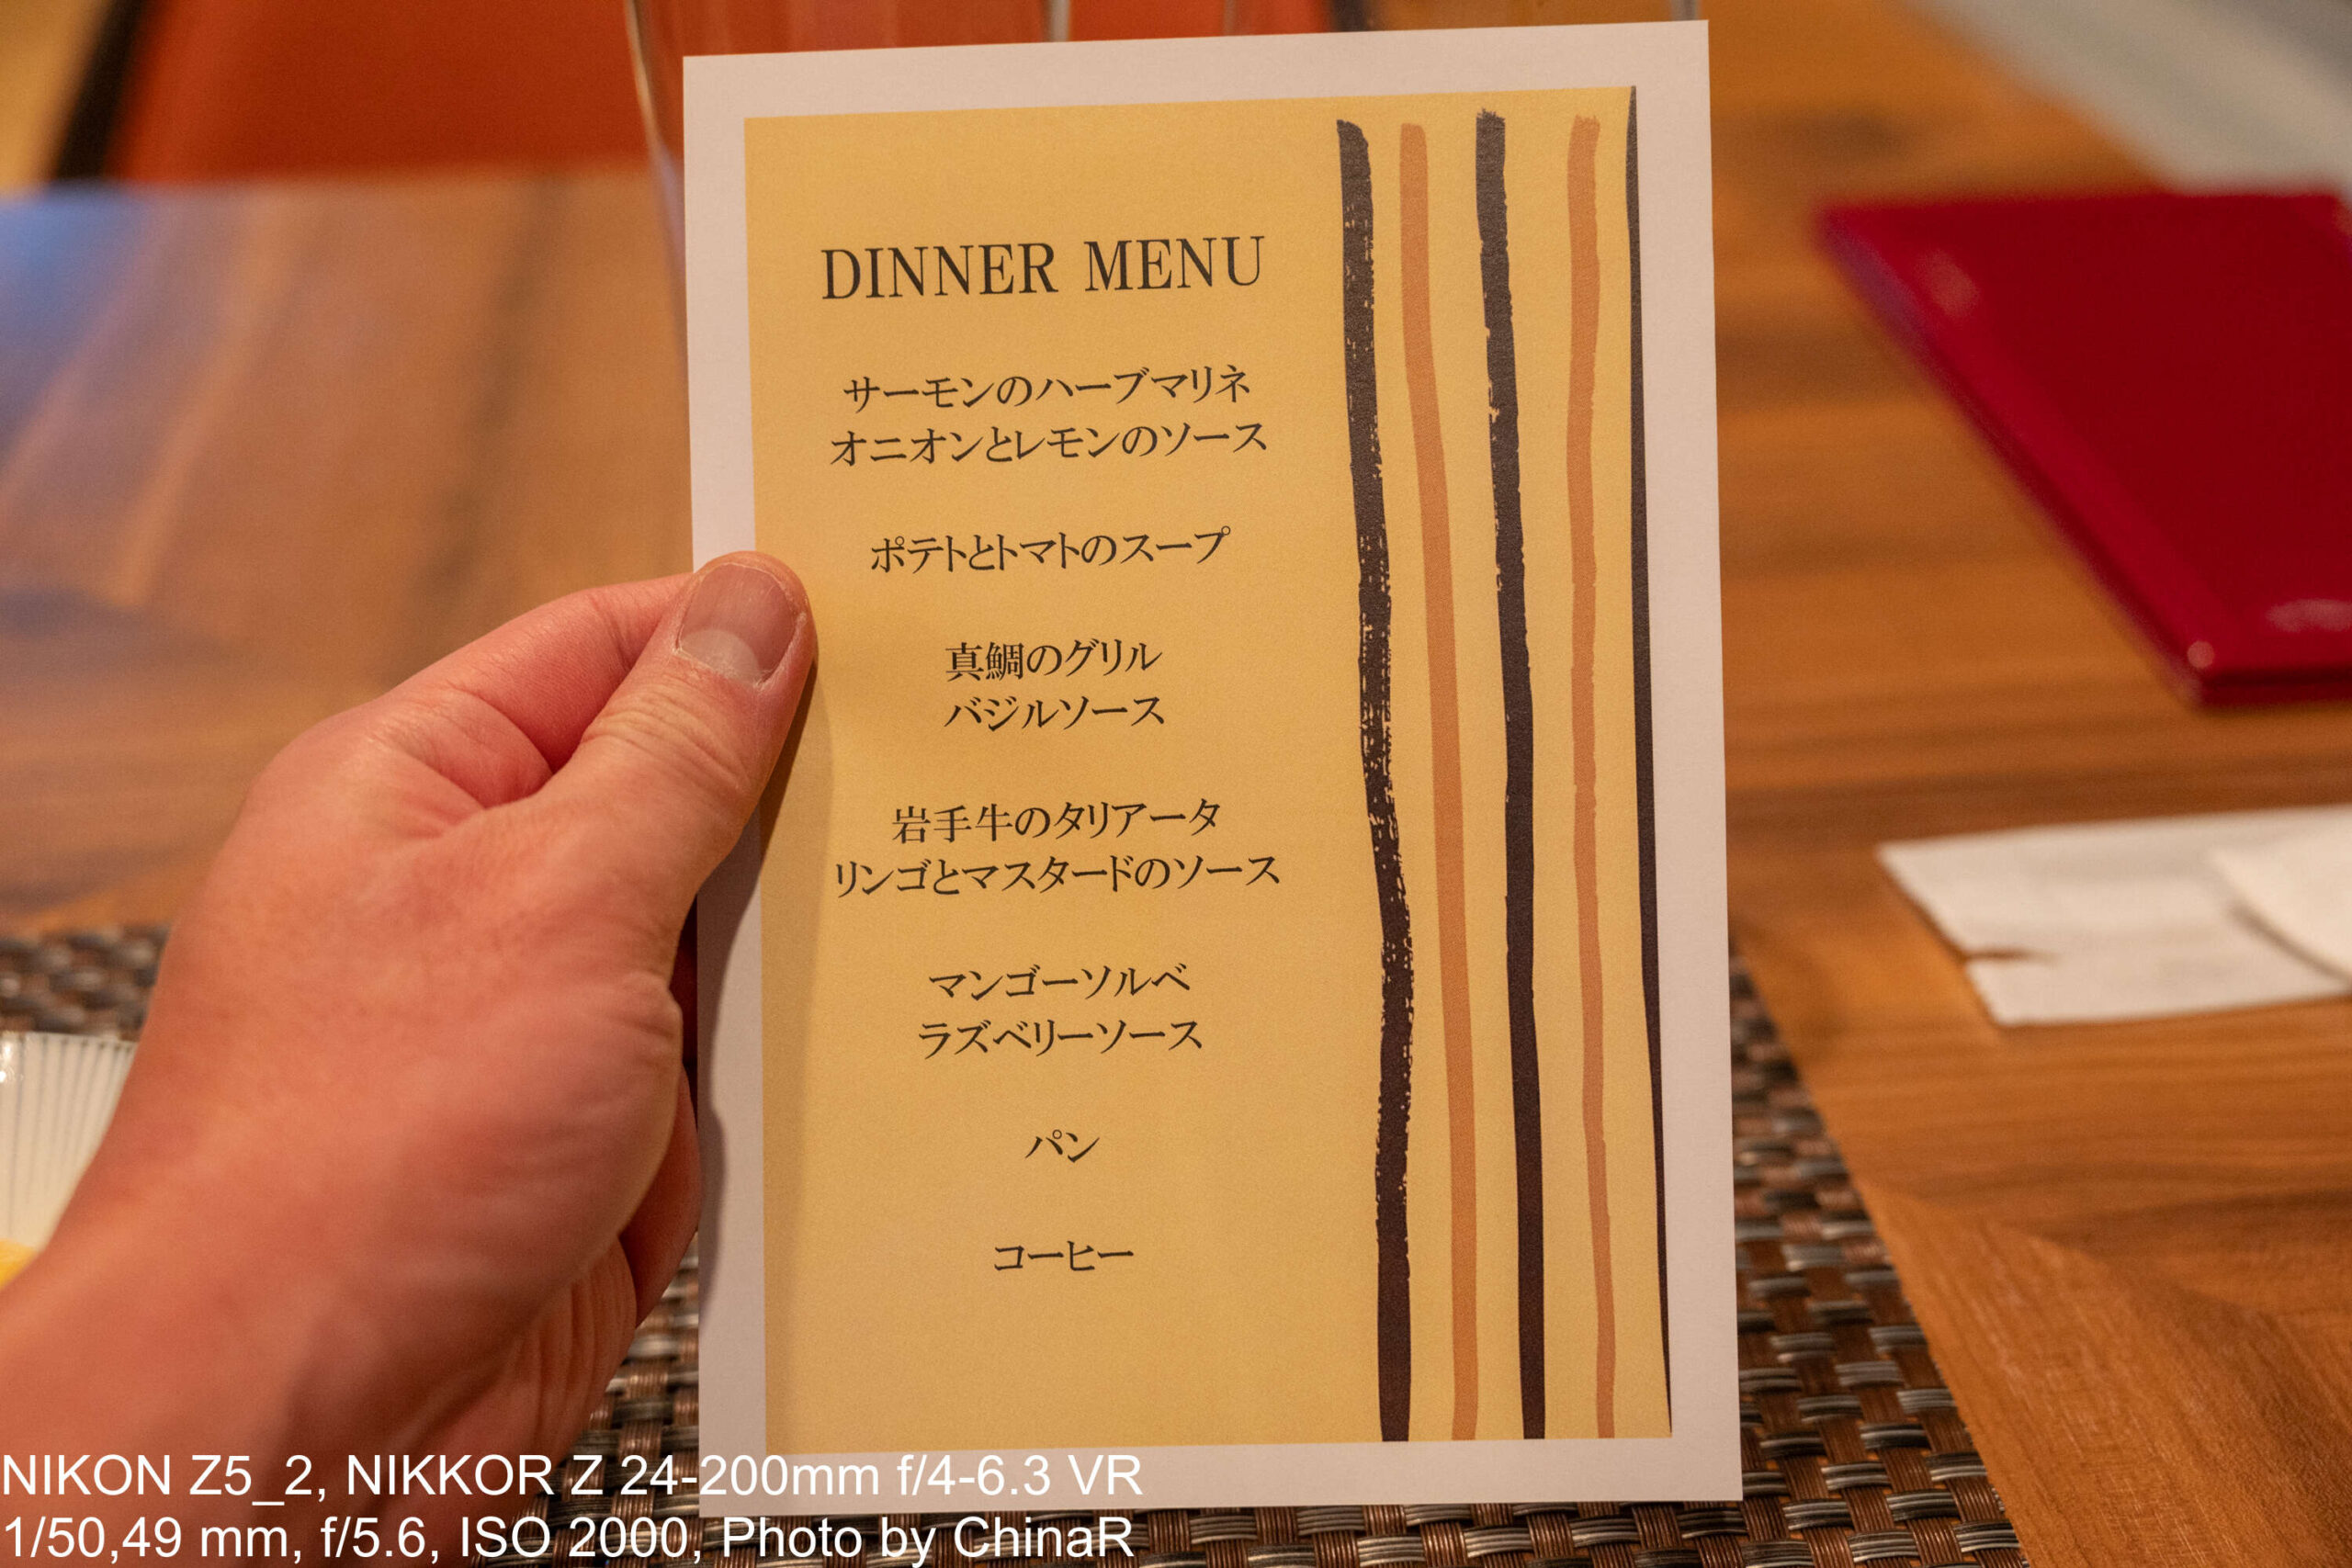 DINNER MENU
サーモンのハーブマリネ
オニオンとレモンのソース
ポテトとトマトのスープ
真鯛のグリル
バジルソース
岩手牛のタリアータ
リンゴとマスタードのソース
マンゴーソルベ
ラズベリーソース
パン
コーヒー
NIKON Z5_2, NIKKOR Z 24-200mm f/4-6.3 VR
1/50,49 mm, f/5.6, ISO 2000, Photo by ChinaR